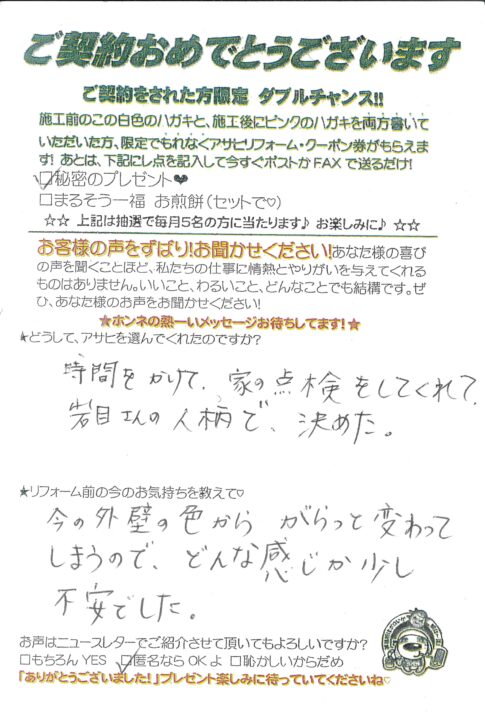 ご契約おめでとうございます
ご契約をされた方限定 ダブルチャンス!!
施工前のこの白色のハガキと、施工後にピンクのハガキを両方書いて
いただいた方、限定でもれなくアサヒリフォーム・クーポン券がもらえま
す! あとは、下記にレ点を記入して今すぐポストかFAXで送るだけ!
☑秘密のプレゼント❤
□まるぞう一福 お煎餅(セットで♡)
☆☆ 上記は抽選で毎月5名の方に当たります♪ お楽しみに♪ ☆☆
お客様の声をずばり!お聞かせください!あなた様の喜び
の声を聞くことほど、私たちの仕事に情熱とやりがいを与えてくれる
ものはありません。いいこと、わるいこと、どんなことでも結構です。ぜ
ひ、あなた様のお声をお聞かせください!
★ホンネの熱ーいメッセージお待ちしてます!★
★どうして、アサヒを選んでくれたのですか?
時間をかけて、家の点検をしてくれて、
岩目さんの人柄で、決めた。
★リフォーム前の今のお気持ちを教えて♡
今の外壁の色から がらっと変わって
しまうので、どんな感じか少し
不安でした。
お声はニュースレターでご紹介させて頂いてもよろしいですか?
□もちろんYES ☑匿名ならOKよ □恥かしいからだめ
「ありがとうございました!」プレゼント楽しみに待っていてくださいね♡